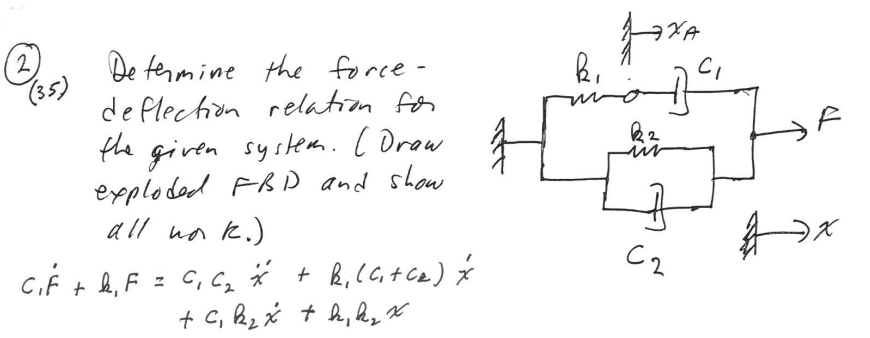 ② Determine the force-
(35) deflection relation for
the given system. (Draw
exploded FBD and show
all work.)
C₁Ḟ + k₁F = C₁C₂ẍ + k₁(C₁+C₂)ẋ
+ C₁k₂ẋ + k₁k₂x
x_A
k₁
C₁
F
k₂
C₂
x